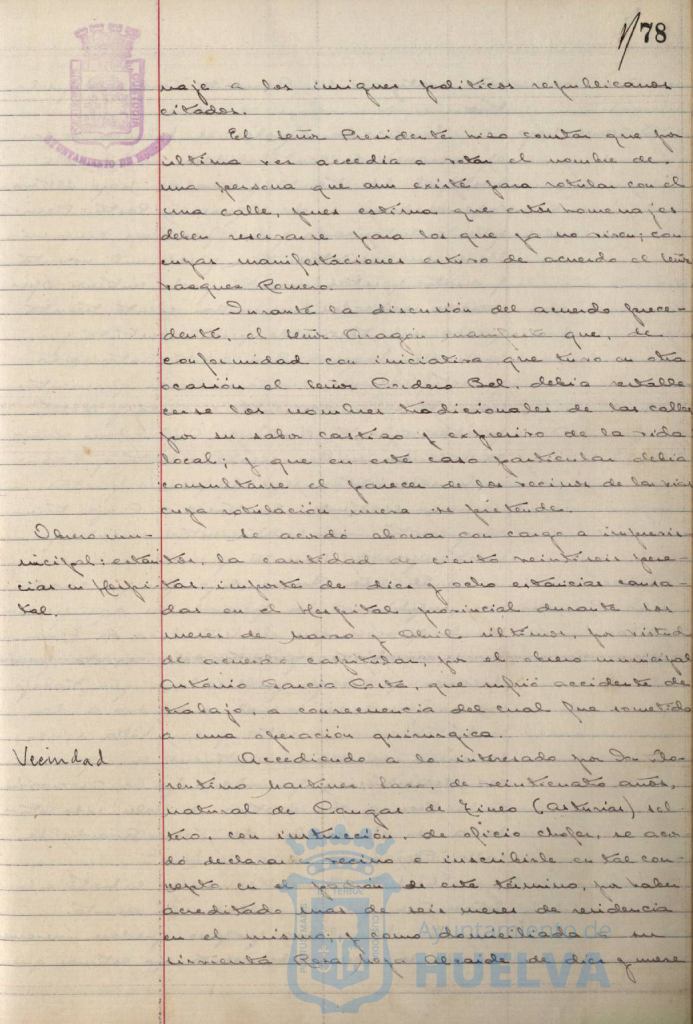 78
naje a los insignes políticos republicanos
citados.
El Señor Presidente hizo constar que por
última vez accedía a rotar el nombre de
una persona que aun existe para rotular con él
una calle, pues estima que estos homenajes
deben reservarse para los que ya no viven; con
cuyas manifestaciones estuvo de acuerdo el Señor
Vazquez Romero.
Durante la discusión del acuerdo prece-
dente, el Señor Aragón manifestó que, de
conformidad con iniciativa que tuvo en otra
ocasión el Señor Cordero Bel, debia restable
cerse los nombres tradicionales de las calles
por su sabor castizo y expresivo de la vida
local; y que en este caso particular debia
consultarse el parecer de los vecinos de las vias
cuya rotulación nueva se pretende.
Obrero mu-
nicipal: estan
cias en Hospi-
tal.
Se acordó abonar con cargo a imprevis
tos, la cantidad de ciento veintiseis pese-
tas, importe de diez y ocho estancias causa-
das en el Hospital provincial durante los
meses de Marzo y Abril últimos, por virtud
de acuerdo capitular, por el obrero municipal
Antonio Garcia Costa, que sufrió accidente de
trabajo, a consecuencia del cual fue sometido
a una operación quirurgica.
Vecindad
Accediendo a lo interesado por Don Flo-
rentino Martinez, de veinticuatro años,
natural de Cangas de Tineo (Asturias) sol-
tero, con instrucción, de oficio chofer, se acor
dó declararle vecino e inscribirle en tal con-
cepto en el padrón de este término, por haber
acreditado mas de seis meses de residencia
en el mismo; y como domiciliada a su
sirvienta Rosa Alcaide de diez y nueve
AYUNTAMIENTO DE HUELVA
Ayuntamiento de
HUELVA